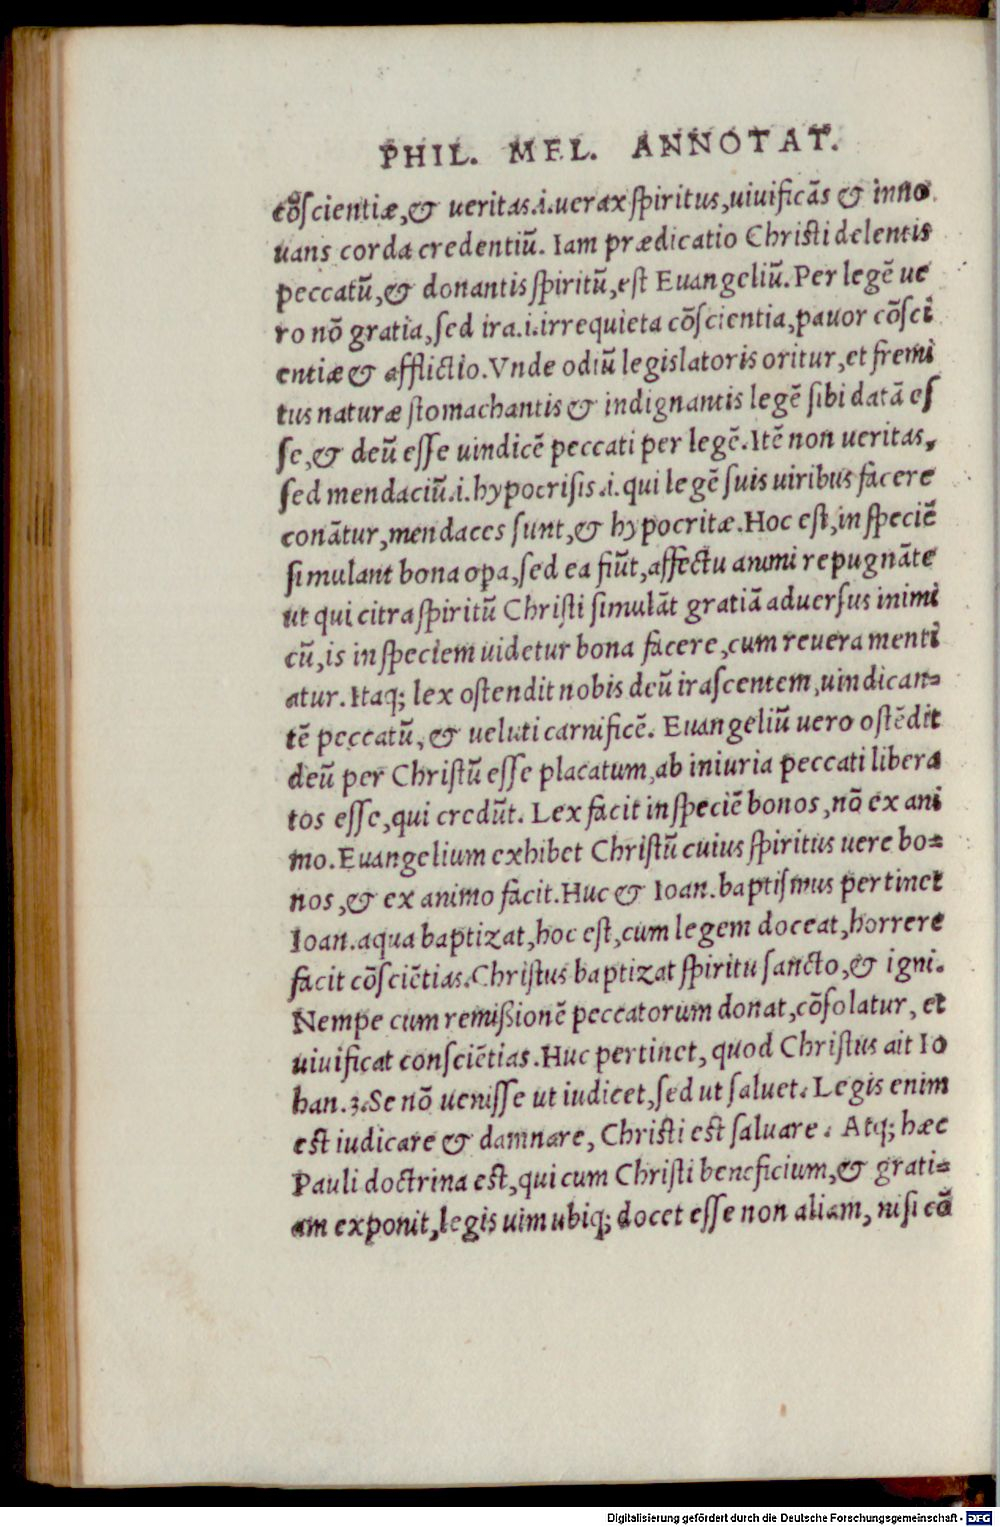 PHIL. MEL. ANNOTAT.
cõscientiæ,& ueritas.i.uerax spiritus,uiuificãs & inno
uans corda credentiũ. Iam prædicatio Christi delentis
peccatũ,& donantis spiritũ,est Euangeliũ. Per legẽ ue
ro nõ gratia,sed ira.i.irrequieta cõscientia,pauor cõsci
entiæ & afflictio.Vnde odiũ legislatoris oritur,et fremi
tus naturæ stomachantis & indignantis legẽ sibi datã es
se,& deũ esse uindicẽ peccati per legẽ.Itẽ non ueritas,
sed mendaciũ.i.hypocrisis.i.qui legẽ suis uiribus facere
conãtur,mendaces sunt,& hypocritæ.Hoc est,in speciẽ
simulant bona opa,sed ea fiũt,affectu animi repugnãte
ut qui citra spiritũ Christi simulãt gratiã aduersus inimi
cũ,is in speciem uidetur bona facere,cum reuera menti
atur.Itaq; lex ostendit nobis deũ irascentem,uindican=
tẽ peccatũ,& ueluti carnificẽ. Euangeliũ uero ostẽdit
deũ per Christũ esse placatum,ab iniuria peccati libera
tos esse,qui credũt. Lex facit in speciẽ bonos,nõ ex ani
mo.Euangelium exhibet Christũ cuius spiritus uere bo=
nos,& ex animo facit.Huc & Ioan.baptismus pertinet
Ioan.aqua baptizat,hoc est,cum legem doceat,horrere
facit cõsciẽtias.Christus baptizat spiritu sancto,& igni.
Nempe cum remißionẽ peccatorum donat,cõsolatur, et
uiuificat consciẽtias.Huc pertinet, quod Christus ait Io
han.3.Se nõ uenisse ut iudicet,sed ut saluet. Legis enim
est iudicare & damnare, Christi est saluare. Atq; hæc
Pauli doctrina est,qui cum Christi beneficium,& grati=
am exponit,legis uim ubiq; docet esse non aliam, nisi cõ
Digitalisierung gefördert durch die Deutsche Forschungsgemeinschaft - DFG